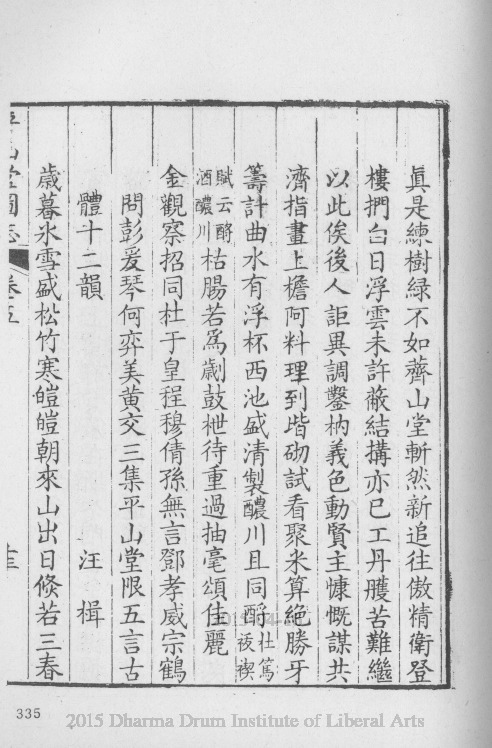 眞是練樹緑不如薺山堂斬然新追往傲精衛登
樓捫白日浮雲未許蔽結搆亦已工丹雘苦難繼
以此俟後人詎異調鑿枘義色動賢主慷慨謀共
濟指畫上檐阿料理到堦砌試看聚米算絶勝牙
籌計曲水有浮杯西池盛清製醲川且同酹杜篤祓禊
賦云酹酒醲川枯腸若為劌鼓枻待重過抽毫頌佳麗
金觀察招同杜于皇程穆倩孫無言鄧孝威宗鶴
問彭爰琴何弈美黄交三集平山堂限五言古
體十二韻 汪楫
歳暮氷雪盛松竹寒皚皚朝來山出日倐若三春
平山堂圖志 卷五
335
2015 Dharma Drum Institute of Liberal Arts